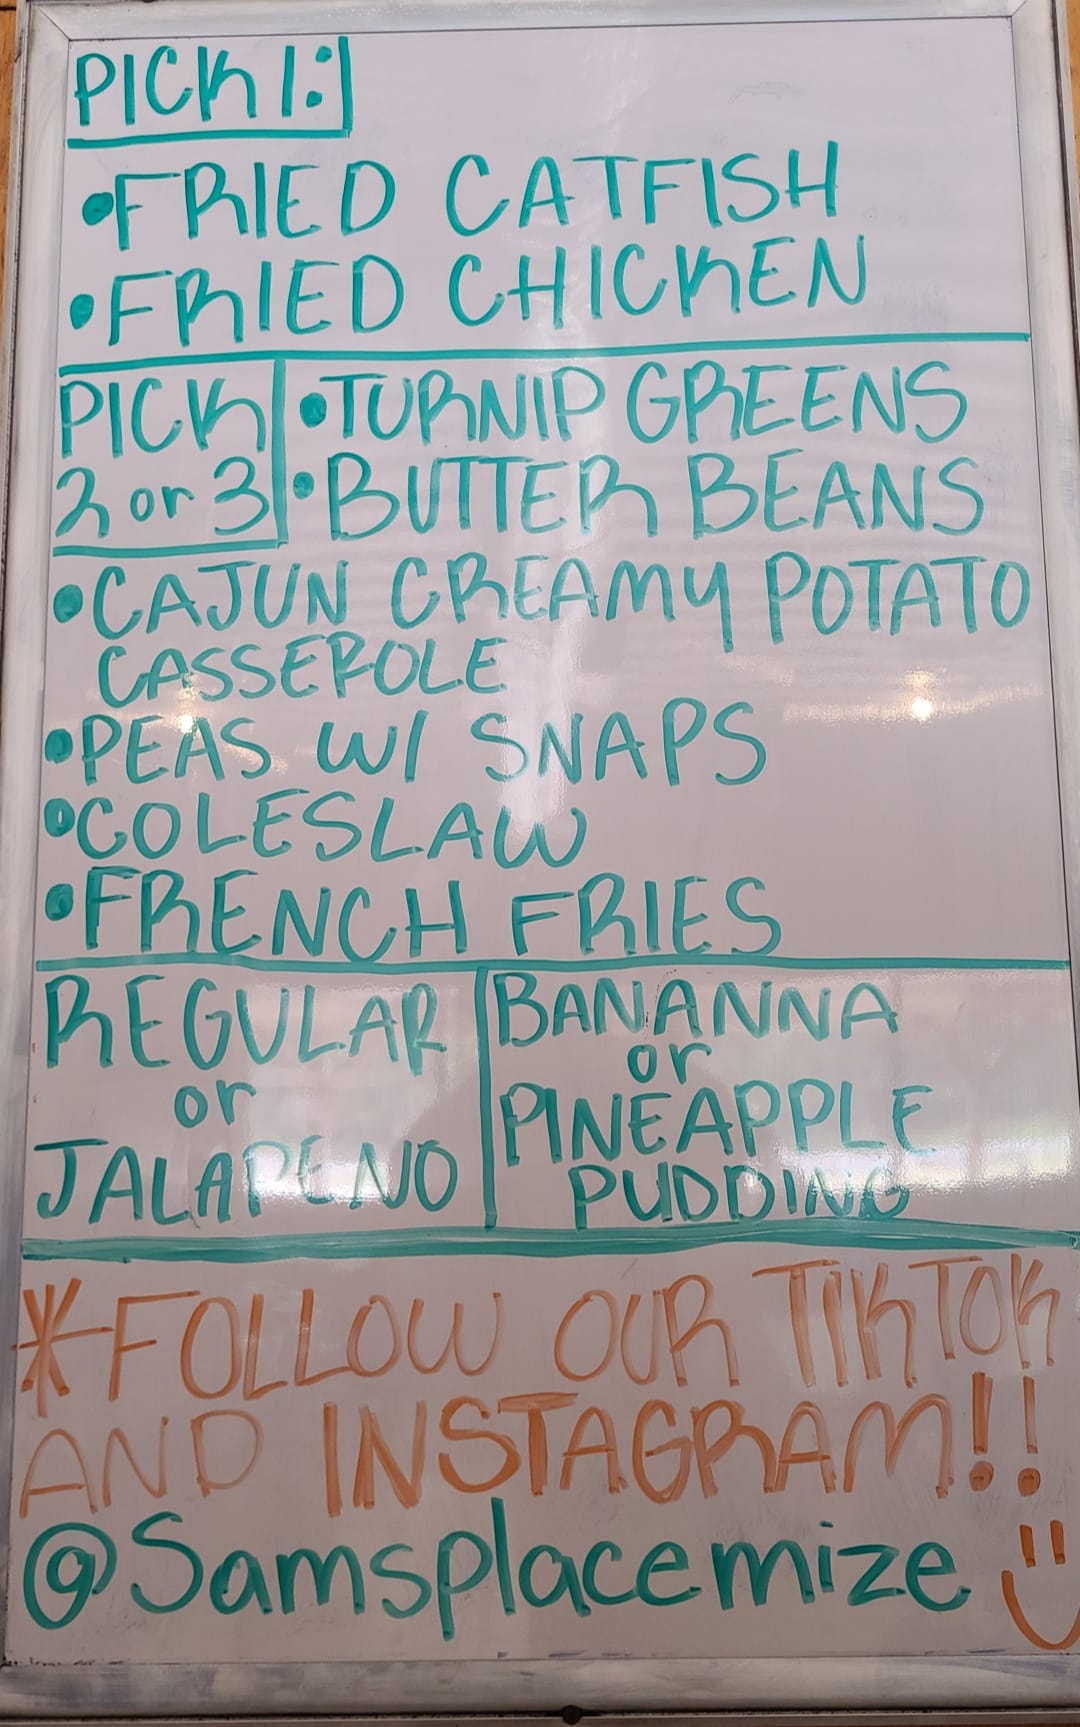 PICK 1:
•FRIED CATFISH
•FRIED CHICKEN
PICK
2 or 3
•TURNIP GREENS
•BUTTER BEANS
•CAJUN CREAMY POTATO
CASSEROLE
•PEAS W/ SNAPS
•COLESLAW
•FRENCH FRIES
REGULAR
or
JALAPENO
BANANNA
or
PINEAPPLE
PUDDING
*FOLLOW OUR TIKTOK
AND INSTAGRAM!!
@Samsplacemize